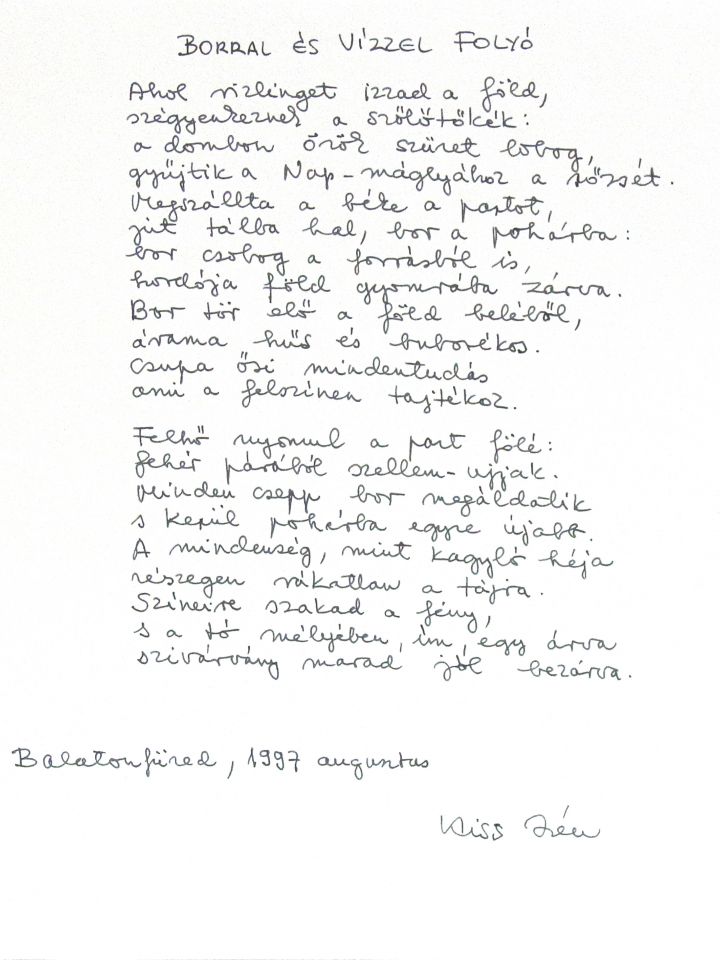 BORRAL ÉS VÍZZEL FOLYÓ
Ahol rizlinget izzad a föld,
szégyenkeznek a szőlőtőkék:
a dombon őrök szüret lobog,
gyűjtik a Nap-máglyához a rőzsét.
Megszállta a béke a partot,
jut tálba hal, bor a pohárba:
bor csobog a forrásból is,
hordója föld gyomrába zárva.
Bor tör elő a föld beléből,
árama hűs és buborékos.
Csupa ősi mindentudás
ami a felszinen tajtékoz.
Felhő nyomul a part fölé:
fehér párából szellem-ujjak.
Minden csepp bor megáldatik
s kerül pohárba egyre újabb.
A mindenség, mint kagyló héja
részegen rákattan a tájra.
Szineire szakad a fény,
s a tó mélyében, ím, egy árva
szivárvány marad jól bezárva.
Balatonfüred, 1997 augustus
Kiss Irén